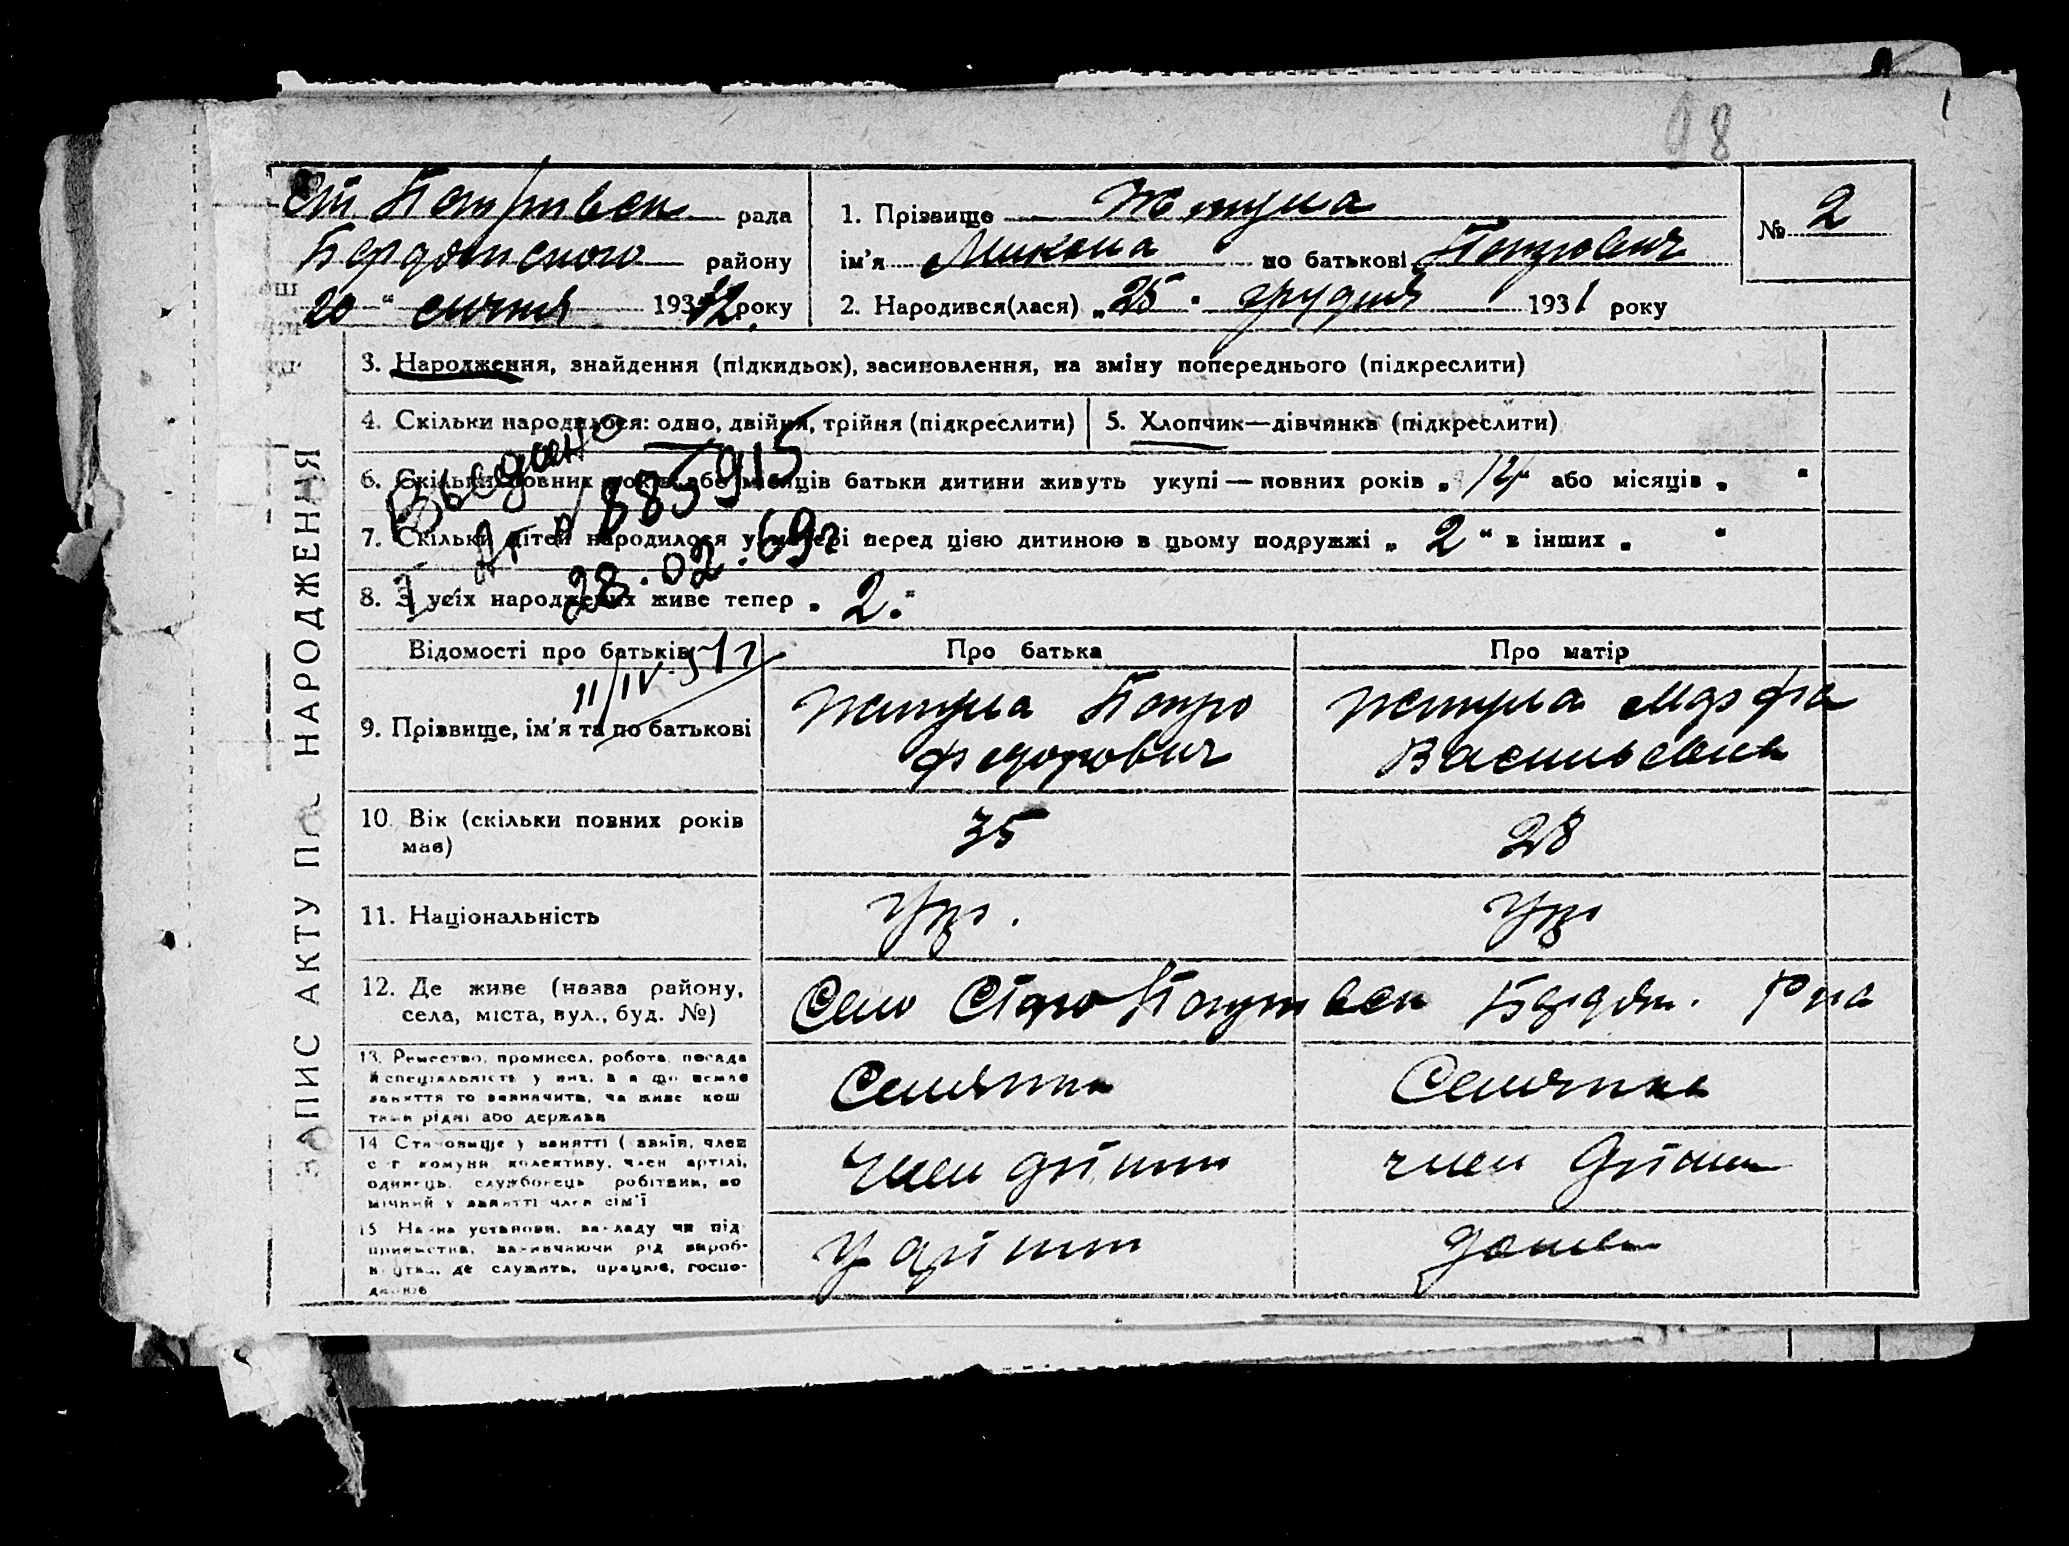 98
Ст Петрівськ рада
Бердянського району
20 " січня 1932 року
1. Прізвище
ім'я Микола по батькові Петрович
2. Народився(лася) „25" грудня 1931 року
№ 2
ЗАПИС АКТУ ПРО НАРОДЖЕННЯ
3. Народження, знайдення (підкидьок), засиновлення, на зміну попереднього (підкреслити)
4. Скільки народилося: одно, двійня, трійня (підкреслити)
5. Хлопчик—дівчинка (підкреслити)
6. Скільки повних років або місяців батьки дитини живуть укупі—повних років „12" або місяців „ "
7. Скільки дітей народилося у матері перед цією дитиною в цьому подружжі „ 2 " в інших „ "
8. З усіх народжених живе тепер „ 2. "
885915
28.02.69г
Відомості про батьків
Про батька
Про матір
11/IV-51г
9. Прізвище, ім'я та по батькові
Петро
Федорович
Марфа
Васильевна
10. Вік (скільки повних років має)
35
28
11. Національність
Укр.
Укр
12. Де живе (назва району, села, міста, вул., буд. №)
Село Старо Петрівськ Бердян. Р-на
13. Ремество, промисел, робота, посада
й спеціяльність у них, а якщо немає
заняття то зазначити, чи живе кош
тами рідні або держави
Селянин
Селянка
14. Становище у занятті (
с-г комуни, колективу, член артілі,
одинець, службовець робітник, по
мічний у занятті член сім'ї
член артіли
член Артили
15. Назва установи, закладу чи під
приємства, зазначаючи рід вироб-
ництва, де служить, працює, госпо-
дарює
У артіли